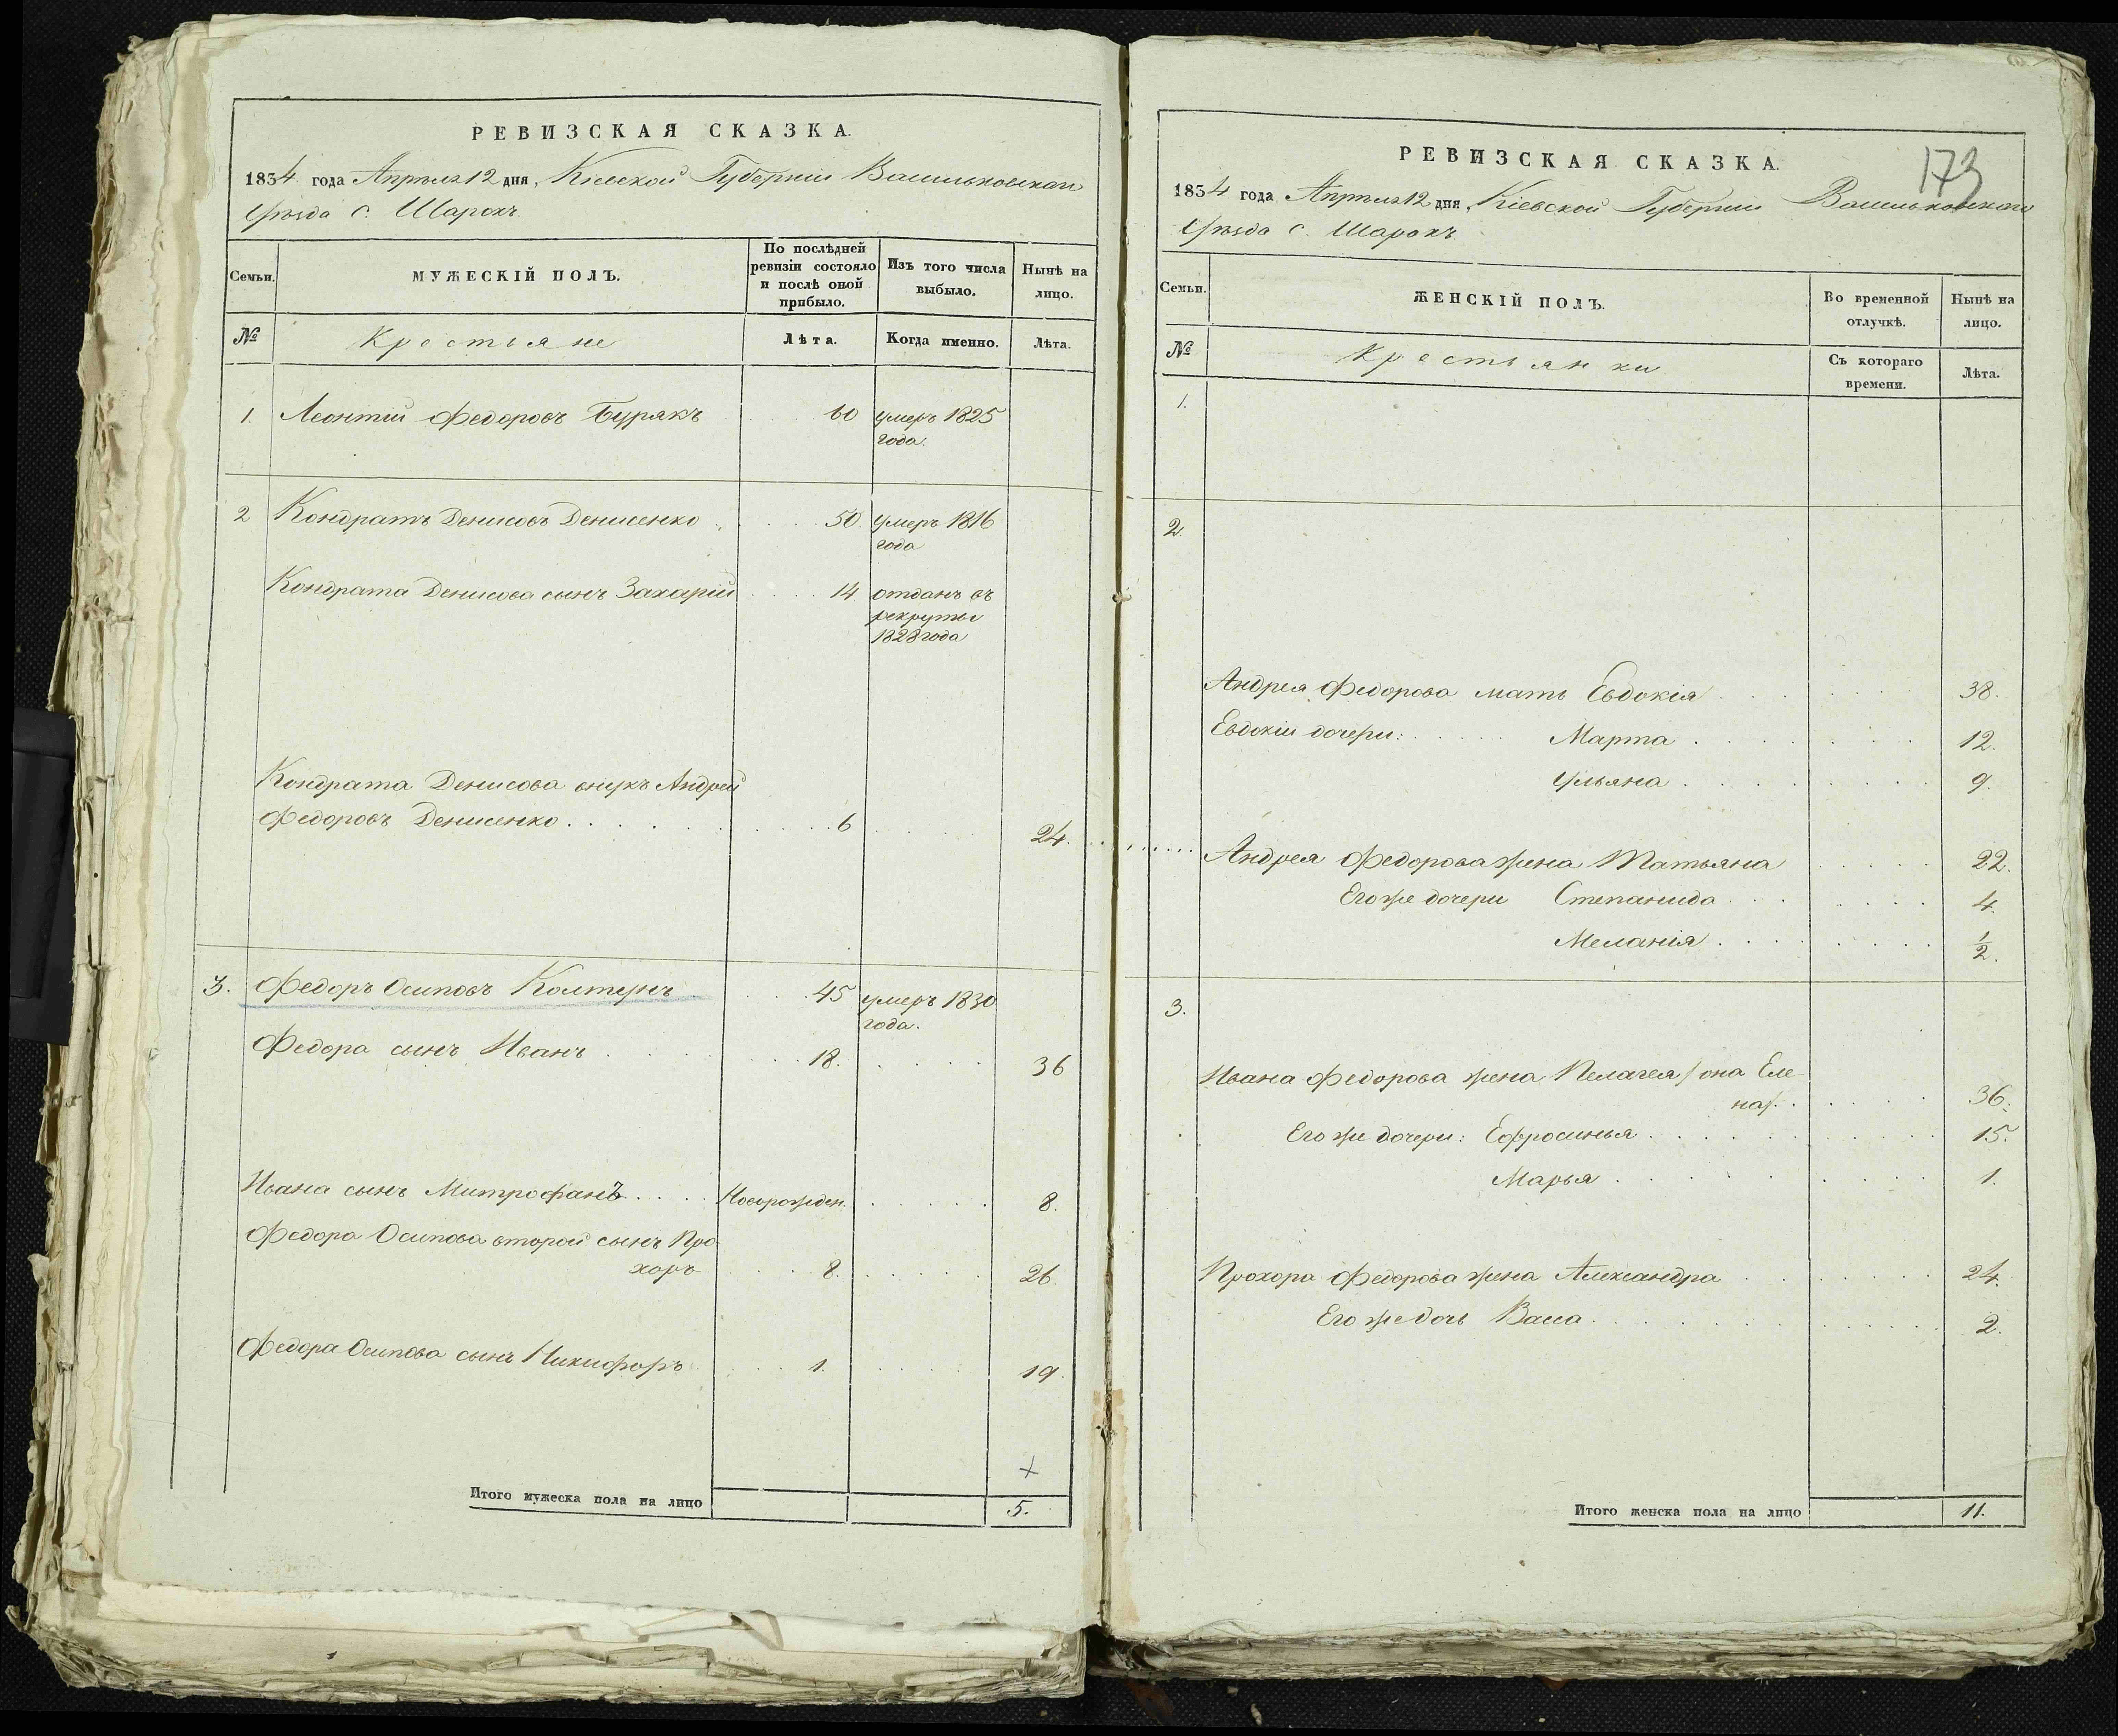 РЕВИЗСКАЯ СКАЗКА.
1834 года Апрѣля 12 дня, Кіевской Губерніи Васильковскаго
Уѣзда с. Шарокъ
Семьи.
МУЖЕСКІЙ ПОЛЪ.
По послѣдней ревизіи состояло и послѣ оной прибыло.
Изъ того числа выбыло.
Нынѣ на лицо.
№
Крестьяне
Лѣта.
Когда именно.
Лѣта.
1. Леонтій Федоровъ Бурякъ 60 умеръ 1825
года.
2 Кондратъ Денисовъ Денисенко 50 умеръ 1816
года
Кондрата Денисова сынъ Захарій 14 отданъ въ
рекруты
1828 года
Кондрата Денисова внукъ Андрей
Федоровъ Денисенко 6 24.
3. Федоръ Осиповъ Колтунъ 45 умеръ 1830
года.
Федора сынъ Иванъ 18. 36
Ивана сынъ Митрофанъ Новорожден. 8.
Федора Осипова второй сынъ Про
хоръ 8. 26
Федора Осипова сынъ Никифоръ 1. 19.
Итого мужеска пола на лицо 5.
173
РЕВИЗСКАЯ СКАЗКА.
1834 года Апрѣля 12 дня, Кіевской Губерніи Васильковскаго
Уѣзда с. Шарокъ
Семьи.
ЖЕНСКІЙ ПОЛЪ.
Во временной отлучкѣ.
Нынѣ на лицо.
№
Крестьянки
Съ котораго времени.
Лѣта.
1.
2.
Андрея Федорова мать Евдокія 38.
Евдокіи дочери: Марта 12.
Ульяна 9.
Андрея Федорова жена Татьяна 22.
Его же дочери Степанида 4.
Меланія 1/2.
3.
Ивана Федорова жена Пелагея /она Еле
на/. 36.
Его же дочери: Ефросинья 15.
Марья 1.
Прохора Федорова жена Александра 24.
Его же дочь Васа 2.
Итого женска пола на лицо 11.